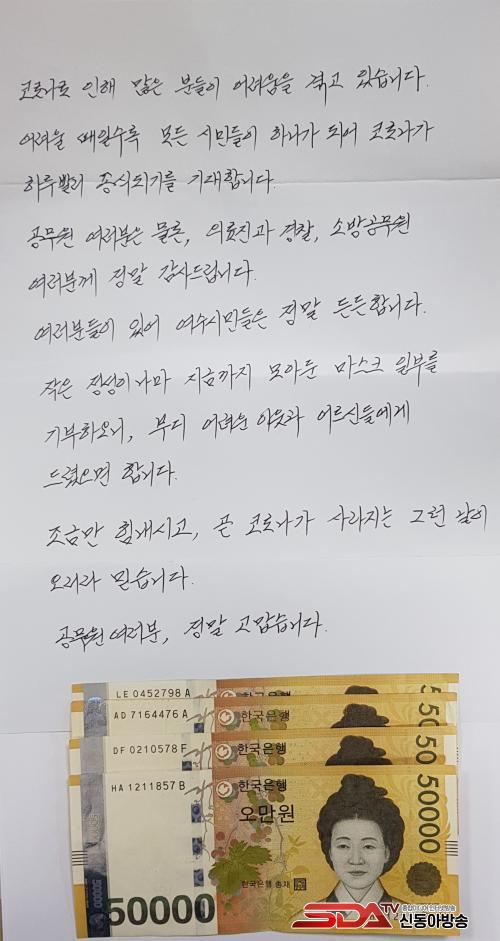 코로나로 인해 많은 분들이 어려움을 겪고 있습니다.
어려울 때일수록 모든 시민들이 하나가 되어 코로나가
하루빨리 종식되기를 기대합니다.
공무원 여러분은 물론, 의료진과 경찰, 소방공무원
여러분께 정말 감사드립니다.
여러분들이 있어 여수시민들은 정말 든든합니다.
작은 정성이나마 지금까지 모아둔 마스크 일부를
기부하오니, 부디 어려운 이웃과 어르신들에게
드렸으면 합니다.
조금만 힘내시고, 곧 코로나가 사라지는 그런 날이
오리라 믿습니다.
공무원 여러분, 정말 고맙습니다.
LE 0452798 A
AD 7164476 A 한국은행 50
DF 0210578 F 한국은행 50
HA 1211857 B 한국은행 50000
오만원
한국은행 총재
50000
50000
SDATV 종합미디어 인터넷방송
신동아방송